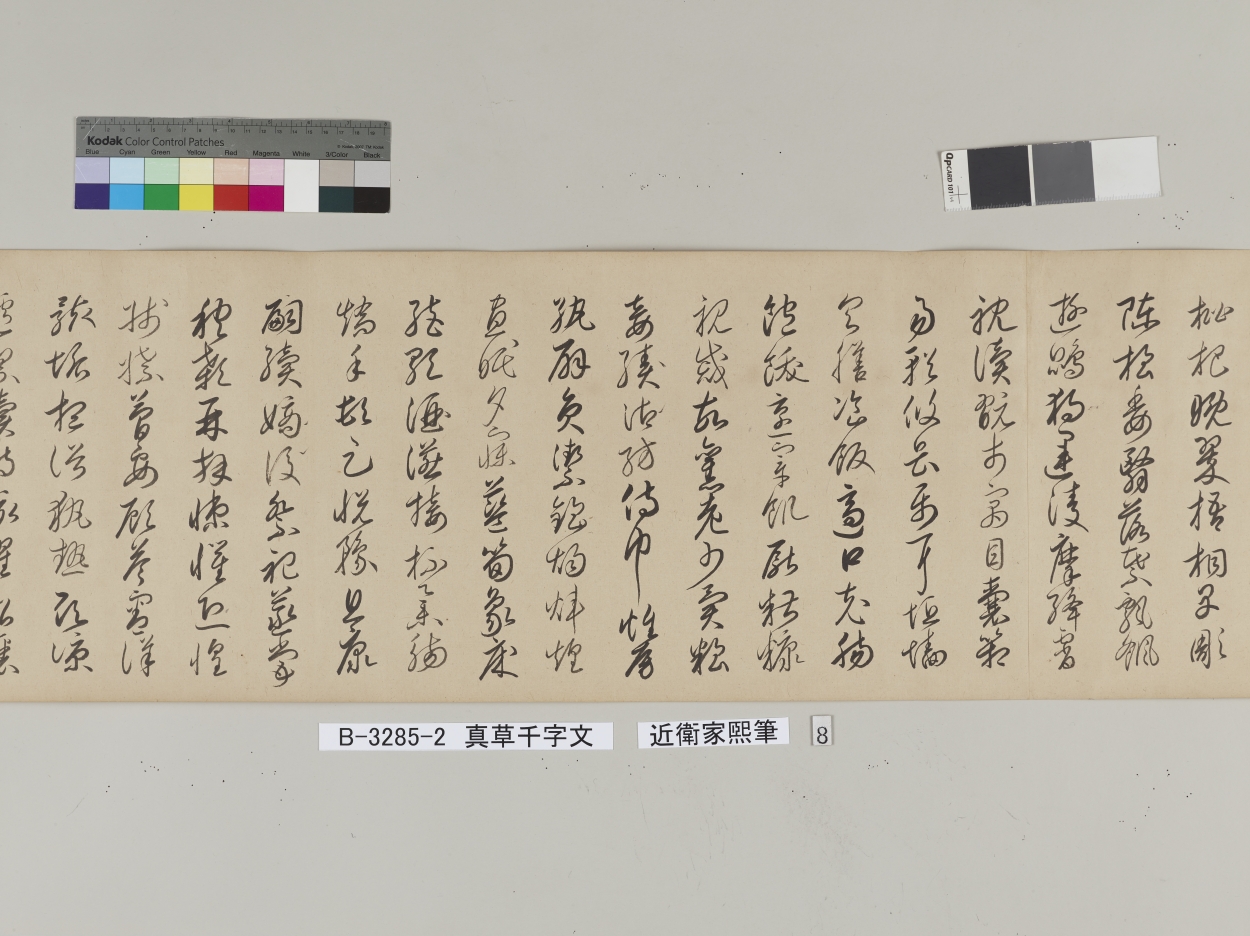 Kodak Color Control Patches
Blue Cyan Green Yellow Red Magenta White 3/Color Black
QPcard 101
枇杷晩翠梧桐早彫
陳根委翳落葉飄颻
遊鵾獨運凌摩絳霄
耽讀翫市寓目囊箱
易輶攸畏屬耳垣墻
具膳飡飯適口充腸
飽飫烹宰飢厭糟糠
親戚故舊老少異糧
妾績御紡侍巾帷房
紈扇圓潔銀燭煒煌
晝眠夕寐藍笋象床
絃歌酒讌接杯舉觴
矯手頓足悅豫且康
嗣續嫡後祭祀蒸嘗
稽顙再拜悚懼恐惶
牋牒簡要顧答審詳
骸垢想浴執熱願凉
B-3285-2 真草千字文 近衛家熙筆 8